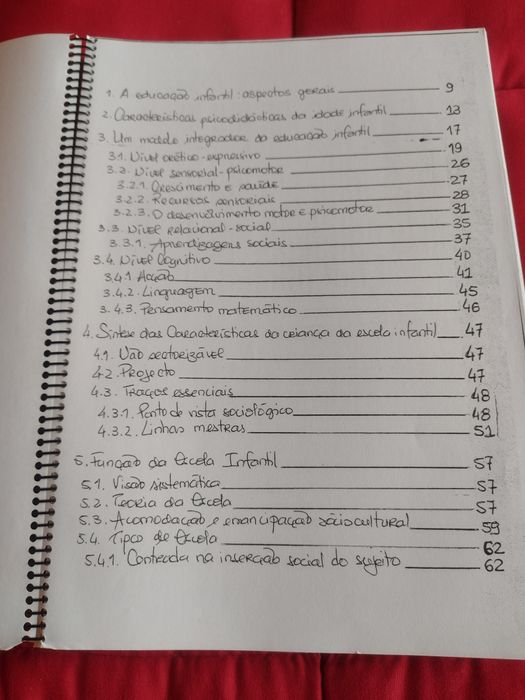 1. A educação infantil: aspectos gerais 9
2. Características psicodidácticas da idade infantil 13
3. Um modelo integrador da educação infantil 17
3.1. Nível oréctico-expressivo 19
3.2. Nível sensorial-psicomotor 26
3.2.1. Crescimento e saúde 27
3.2.2. Recursos sensoriais 28
3.2.3. O desenvolvimento motor e psicomotor 31
3.3. Nível relacional-social 35
3.3.1. Aprendizagens sociais 37
3.4. Nível Cognitivo 40
3.4.1 Acção 41
3.4.2. Linguagem 45
3.4.3. Pensamento matemático 46
4. Síntese das Características da criança da escola infantil 47
4.1. Não sectorizável 47
4.2. Projecto 47
4.3. Traços essenciais 48
4.3.1. Ponto de vista sociológico 48
4.3.2. Linhas mestras 51
5. Função da Escola Infantil 57
5.1. Visão sistemática 57
5.2. Teoria da Escola 57
5.3. Acomodação e emancipação sócio cultural 59
5.4. Tipo de Escola 62
5.4.1. Conteúda na inserção social do sujeito 62